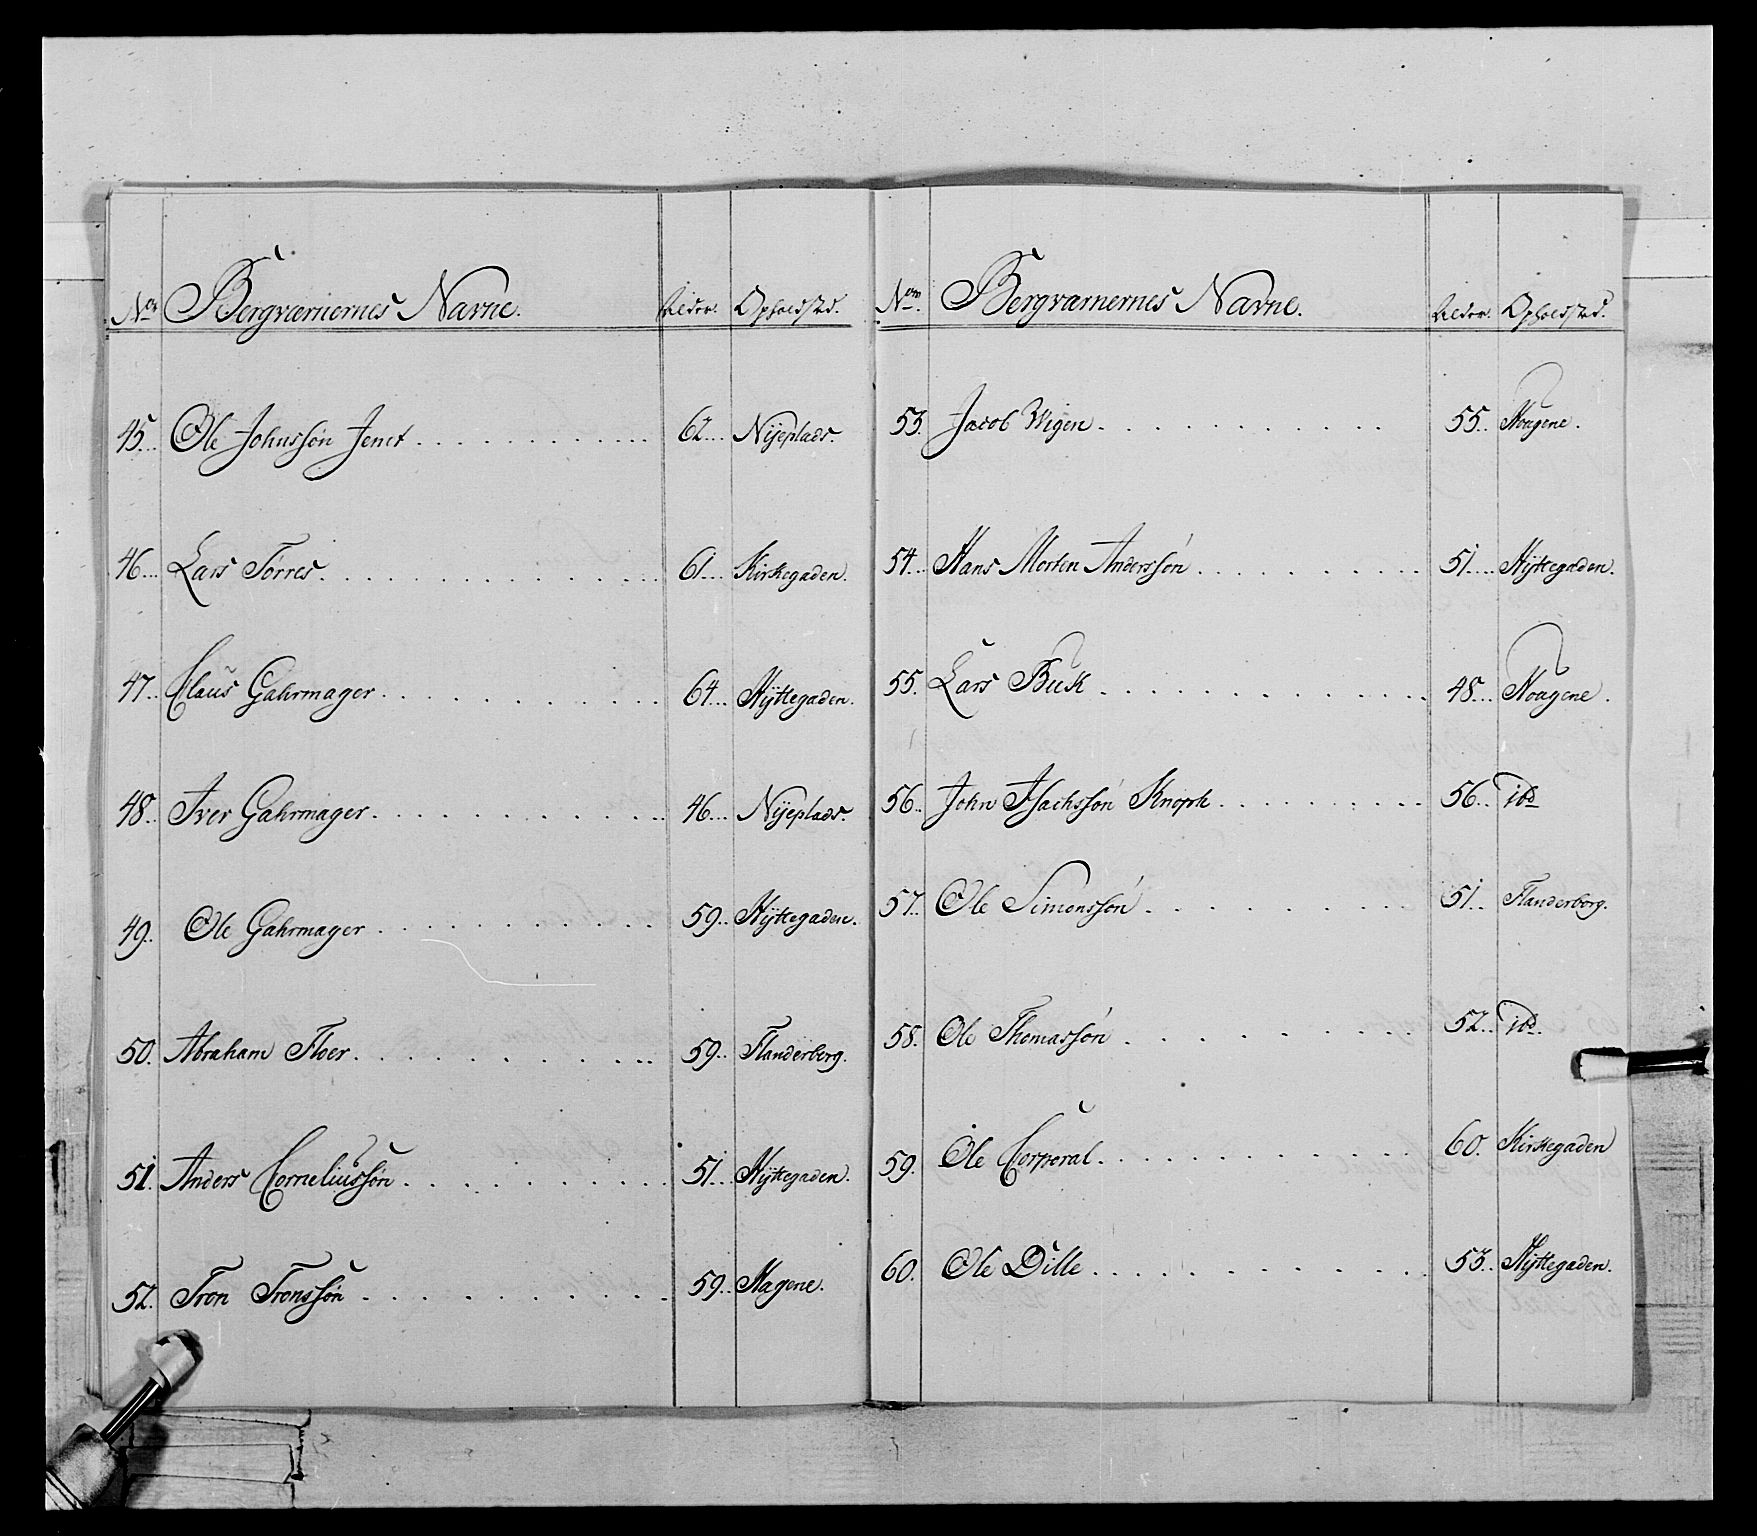 No Bergværnernes Navne. Alder. Opholdsted.
45. Ole Johnssøn Jemt 62 Nÿeplads.
46. Lars Torres 61 Kirkegaden.
47. Claus Gahrmager 64 Hÿttegaden.
48. Iver Gahrmager 46 Nÿeplads.
49. Ole Gahrmager 59 Hÿttegaden.
50. Abraham Floer 59 Flanderborg.
51. Anders Corneliussøn 51 Hÿttegaden.
52. Tron Tronssøn 59 Hagene.
No Bergværnernes Navne. Alder. Opholdsted.
53. Jacob Wigen 55 Hougene.
54. Hans Morten Anderssøn 51 Hÿttegaden.
55. Lars Buk 48 Hougene.
56. John Isachssøn Knoph 56 ibd
57. Ole Simenssøn 51 Flanderborg.
58. Ole Thomassøn 52 ibd.
59. Ole Corporal 60. Kirkegaden
60. Ole Dille 53 Hÿttegaden.